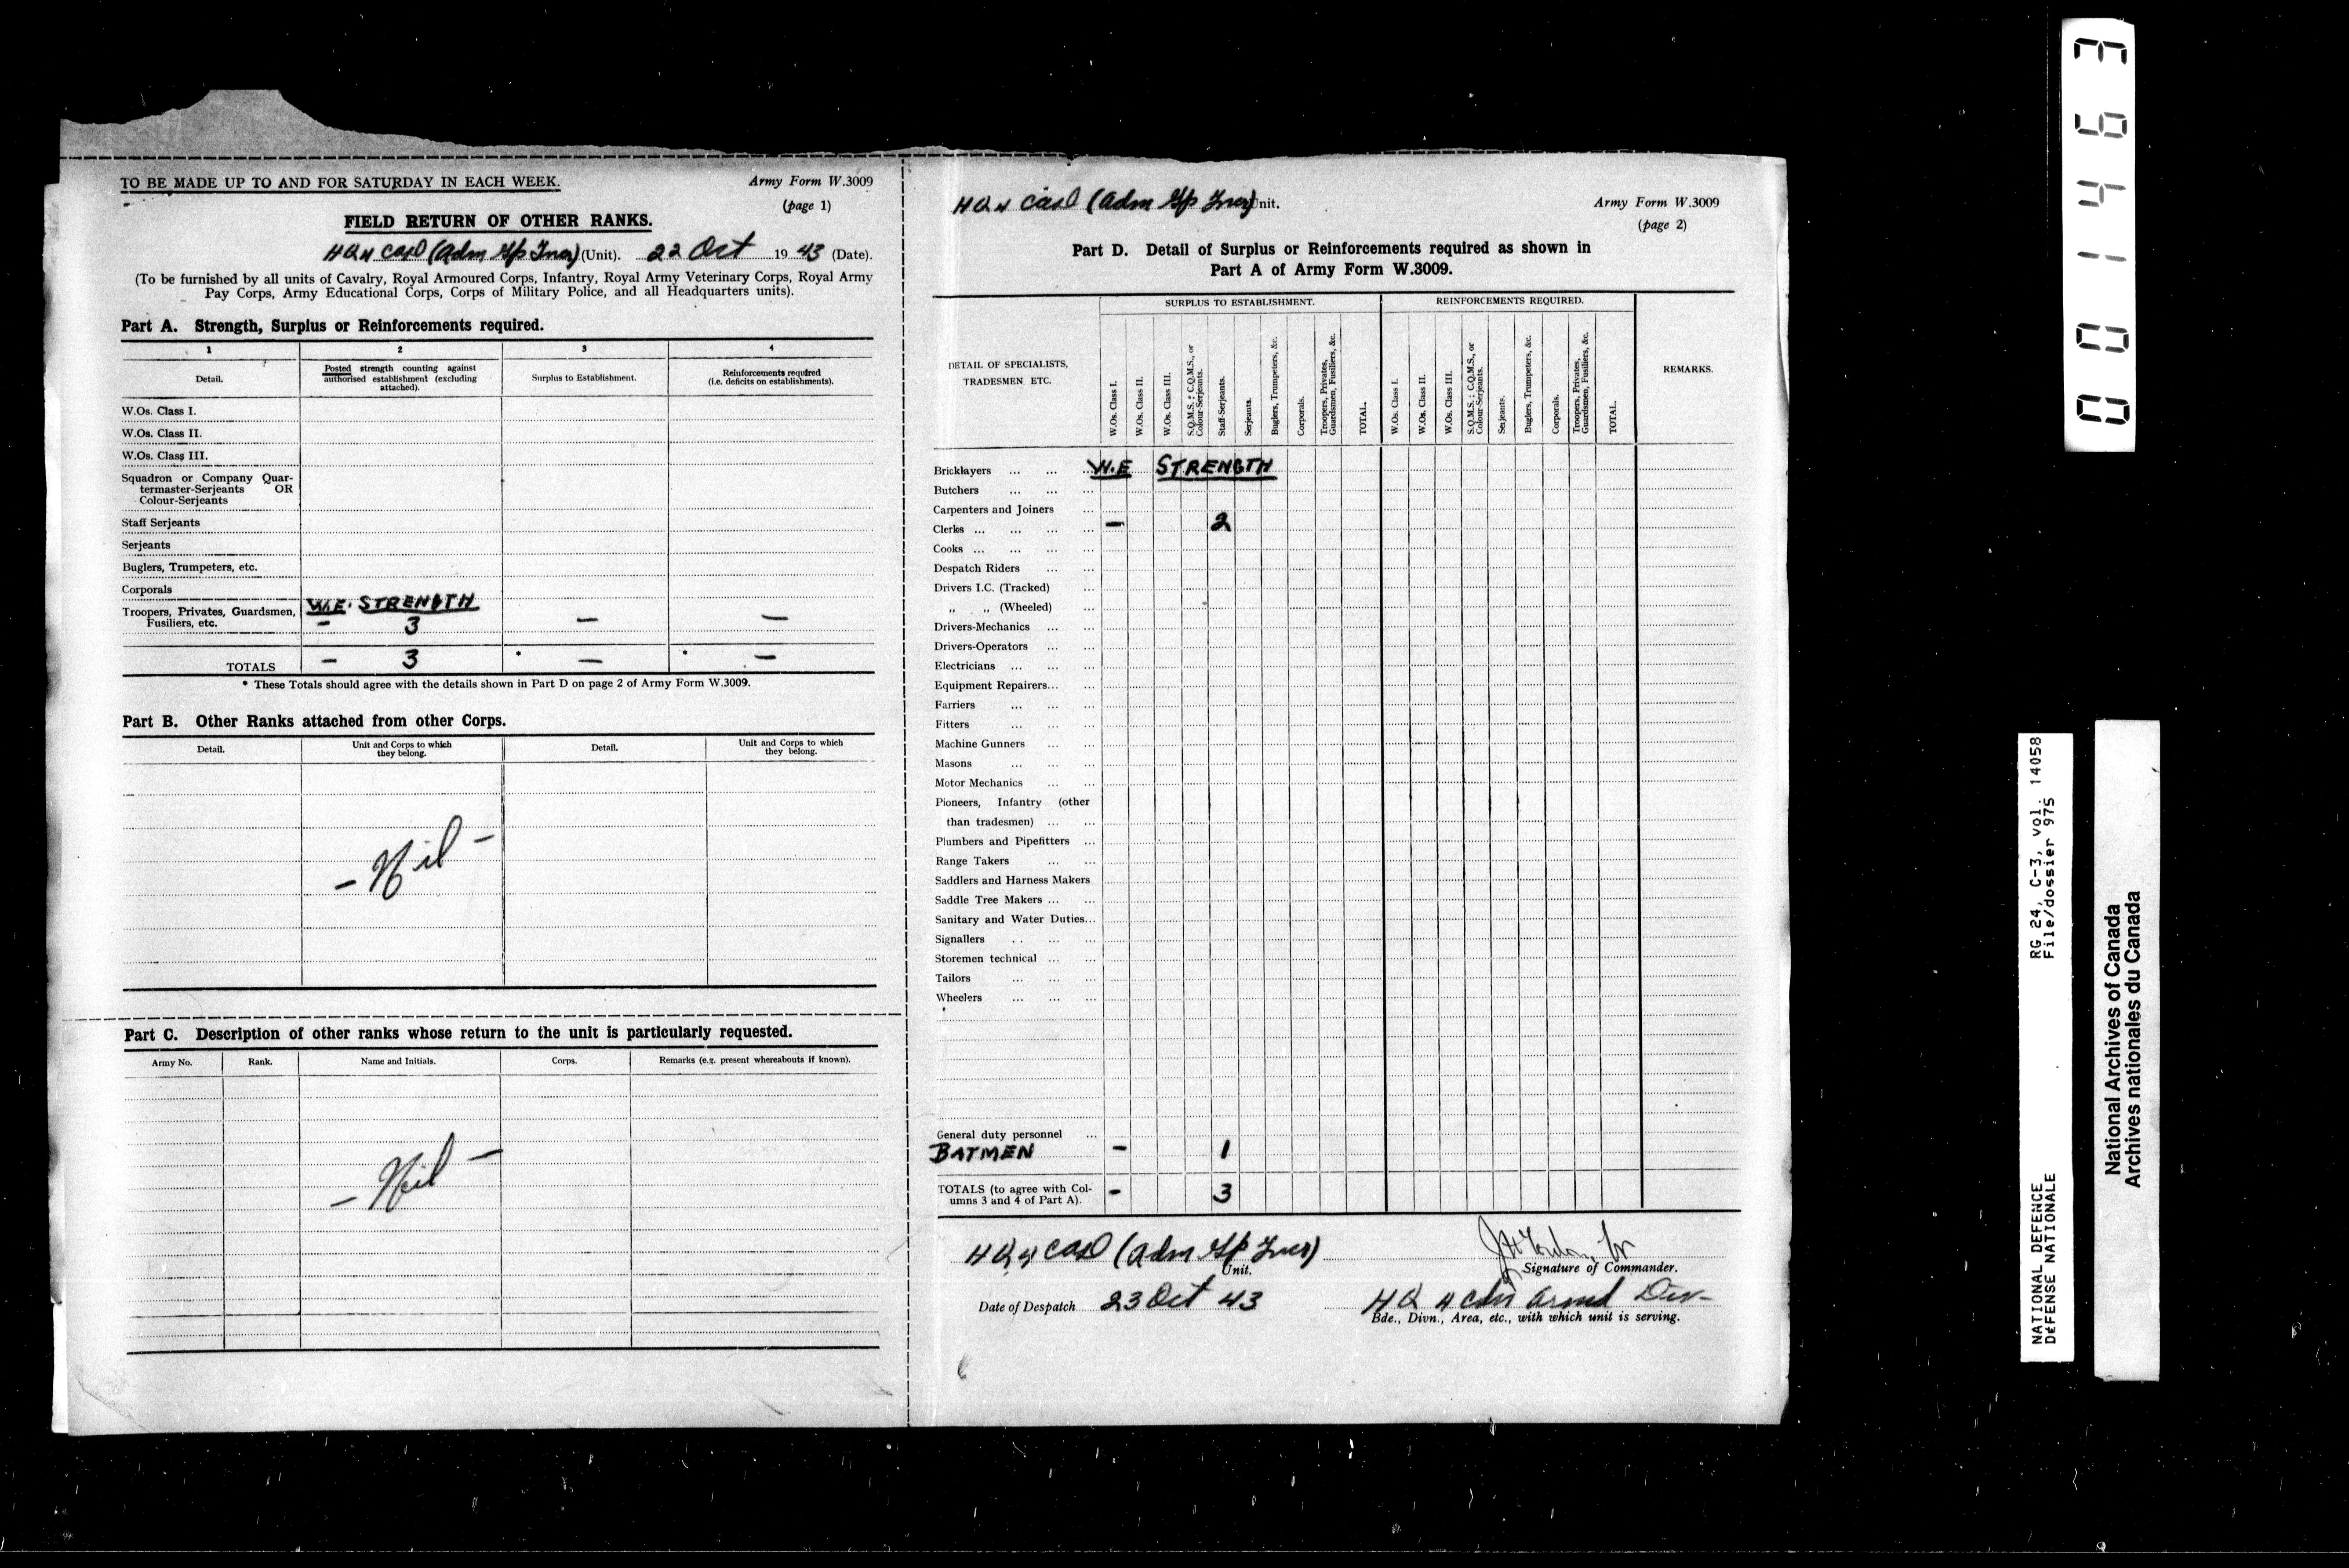 TO BE MADE UP TO AND FOR SATURDAY IN EACH WEEK.
Army Form W.3009
(page 1)
FIELD RETURN OF OTHER RANKS.
HQ 4 CASD (Adm Gp Incr) (Unit). 22 Oct 19 43 (Date).
(To be furnished by all units of Cavalry, Royal Armoured Corps, Infantry, Royal Army Veterinary Corps, Royal Army
Pay Corps, Army Educational Corps, Corps of Military Police, and all Headquarters units).
Part A. Strength, Surplus or Reinforcements required.
1 2 3 4
Detail.
Posted strength counting against
authorised establishment (excluding
attached).
Surplus to Establishment.
Reinforcements required
(i.e. deficits on establishments).
W.Os. Class I.
W.Os. Class II.
W.Os. Class III.
Squadron or Company Quar-
termaster-Serjeants OR
Colour-Serjeants
Staff Serjeants
Serjeants
Buglers, Trumpeters, etc.
Corporals
W.E. STRENGTH
Troopers, Privates, Guardsmen,
Fusiliers, etc. – 3 – –
TOTALS – 3 * – * –
* These Totals should agree with the details shown in Part D on page 2 of Army Form W.3009.
Part B. Other Ranks attached from other Corps.
Detail.
Unit and Corps to which
they belong.
Detail.
Unit and Corps to which
they belong.
– Nil –
Part C. Description of other ranks whose return to the unit is particularly requested.
Army No. Rank. Name and Initials. Corps. Remarks (e.g. present whereabouts if known).
– Nil –
HQ 4 CASD (Adm Gp Incr) Unit.
Army Form W.3009
(page 2)
Part D. Detail of Surplus or Reinforcements required as shown in
Part A of Army Form W.3009.
SURPLUS TO ESTABLISHMENT. REINFORCEMENTS REQUIRED.
DETAIL OF SPECIALISTS,
TRADESMEN ETC.
W.Os. Class I.
W.Os. Class II.
W.Os. Class III.
S.Q.M.S.; C.Q.M.S., or
Colour-Serjeants.
Staff-Serjeants.
Serjeants.
Buglers, Trumpeters, &c.
Corporals.
Troopers, Privates,
Guardsmen, Fusiliers, &c.
TOTAL.
W.Os. Class I.
W.Os. Class II.
W.Os. Class III.
S.Q.M.S.; C.Q.M.S., or
Colour-Serjeants.
Serjeants.
Buglers, Trumpeters, &c.
Corporals.
Troopers, Privates,
Guardsmen, Fusiliers, &c.
TOTAL.
REMARKS.
Bricklayers ... ... ... W.E STRENGTH
Butchers ... ... ...
Carpenters and Joiners ...
Clerks ... ... ... ... – 2
Cooks ... ... ... ...
Despatch Riders ... ...
Drivers I.C. (Tracked) ...
„ „ (Wheeled) ...
Drivers-Mechanics ... ...
Drivers-Operators ... ...
Electricians ... ... ...
Equipment Repairers... ...
Farriers ... ... ...
Fitters ... ... ...
Machine Gunners ... ...
Masons ... ... ...
Motor Mechanics ... ...
Pioneers, Infantry (other
than tradesmen) ... ...
Plumbers and Pipefitters ...
Range Takers ... ...
Saddlers and Harness Makers
Saddle Tree Makers ... ...
Sanitary and Water Duties...
Signallers .. ... ...
Storemen technical ... ...
Tailors ... ... ...
Wheelers ... ... ...
General duty personnel ...
BATMEN – 1
TOTALS (to agree with Col-
umns 3 and 4 of Part A). – 3
HQ 4 CASD (Adm Gp Incr)
Unit.
Signature of Commander.
Date of Despatch 23 Oct 43
HQ 4 Cdn Armd Div
Bde., Divn., Area, etc., with which unit is serving.
001463
RG 24, C-3, vol. 14058
File/dossier 975
NATIONAL DEFENCE
DéFENSE NATIONALE
National Archives of Canada
Archives nationales du Canada